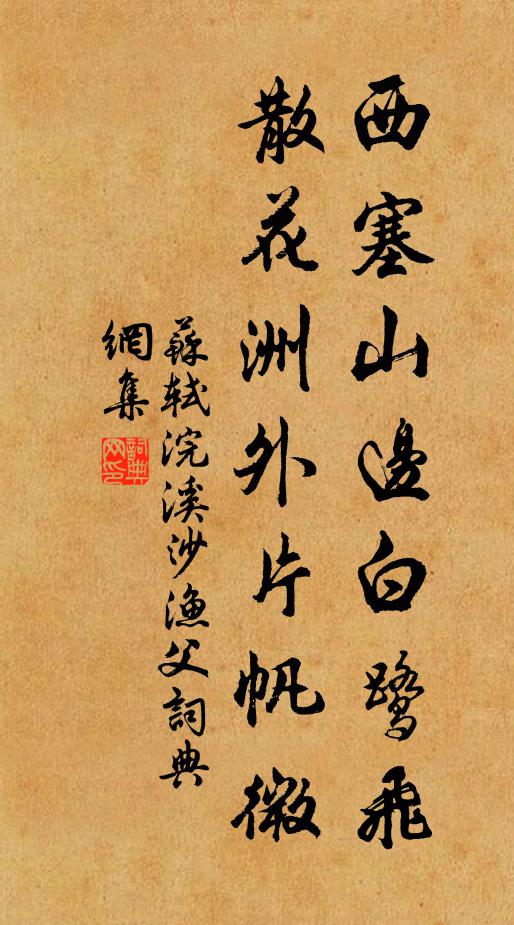 西塞山邊白鷺飛
散花洲外片帆微
蘇軾浣溪沙漁父詞典
網集
詞典
網印